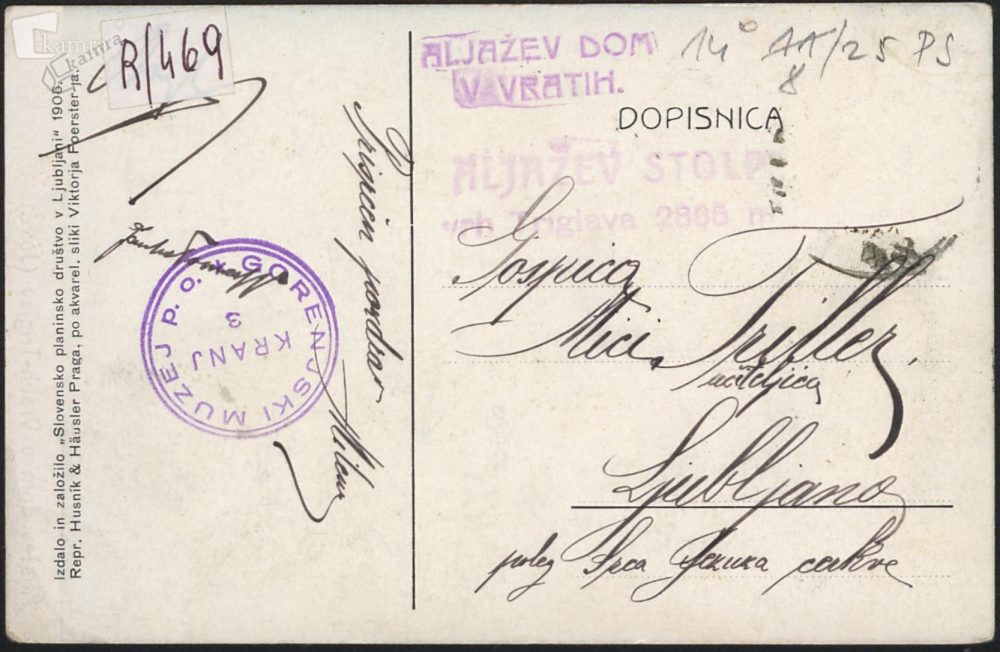 kamra
kamra
R/469
ALJAŽEV DOM
V VRATIH.
14 AA/25 PS
8
DOPISNICA
ALJAŽEV STOLP
vrh Triglava 2865 m
Gospica
Mici Triller,
učiteljica
Ljubljana
poleg Srca Jezusa cerkve
Prisrčen pozdrav
Milan
GORENJSKI MUZEJ P. O.
KRANJ
3
Izdalo in založilo „Slovensko planinsko društvo v Ljubljani“ 1906.
Repr. Husnik & Häusler Praga, po akvarel. sliki Viktorja Foerster-ja.